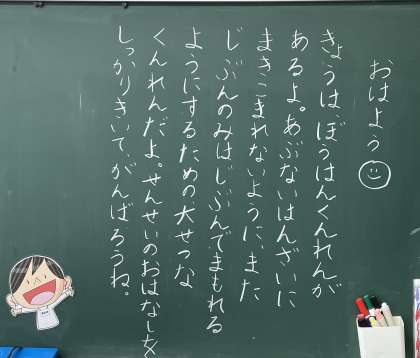 おはよう
きょうは、ぼうはんくんれんが
あるよ。あぶないはんざいに
まきこまれないように、また
じぶんのみはじぶんでまもれる
ようにするための大せつな
くんれんだよ。せんせいのおはなしを
しっかりきいてがんばろうね。